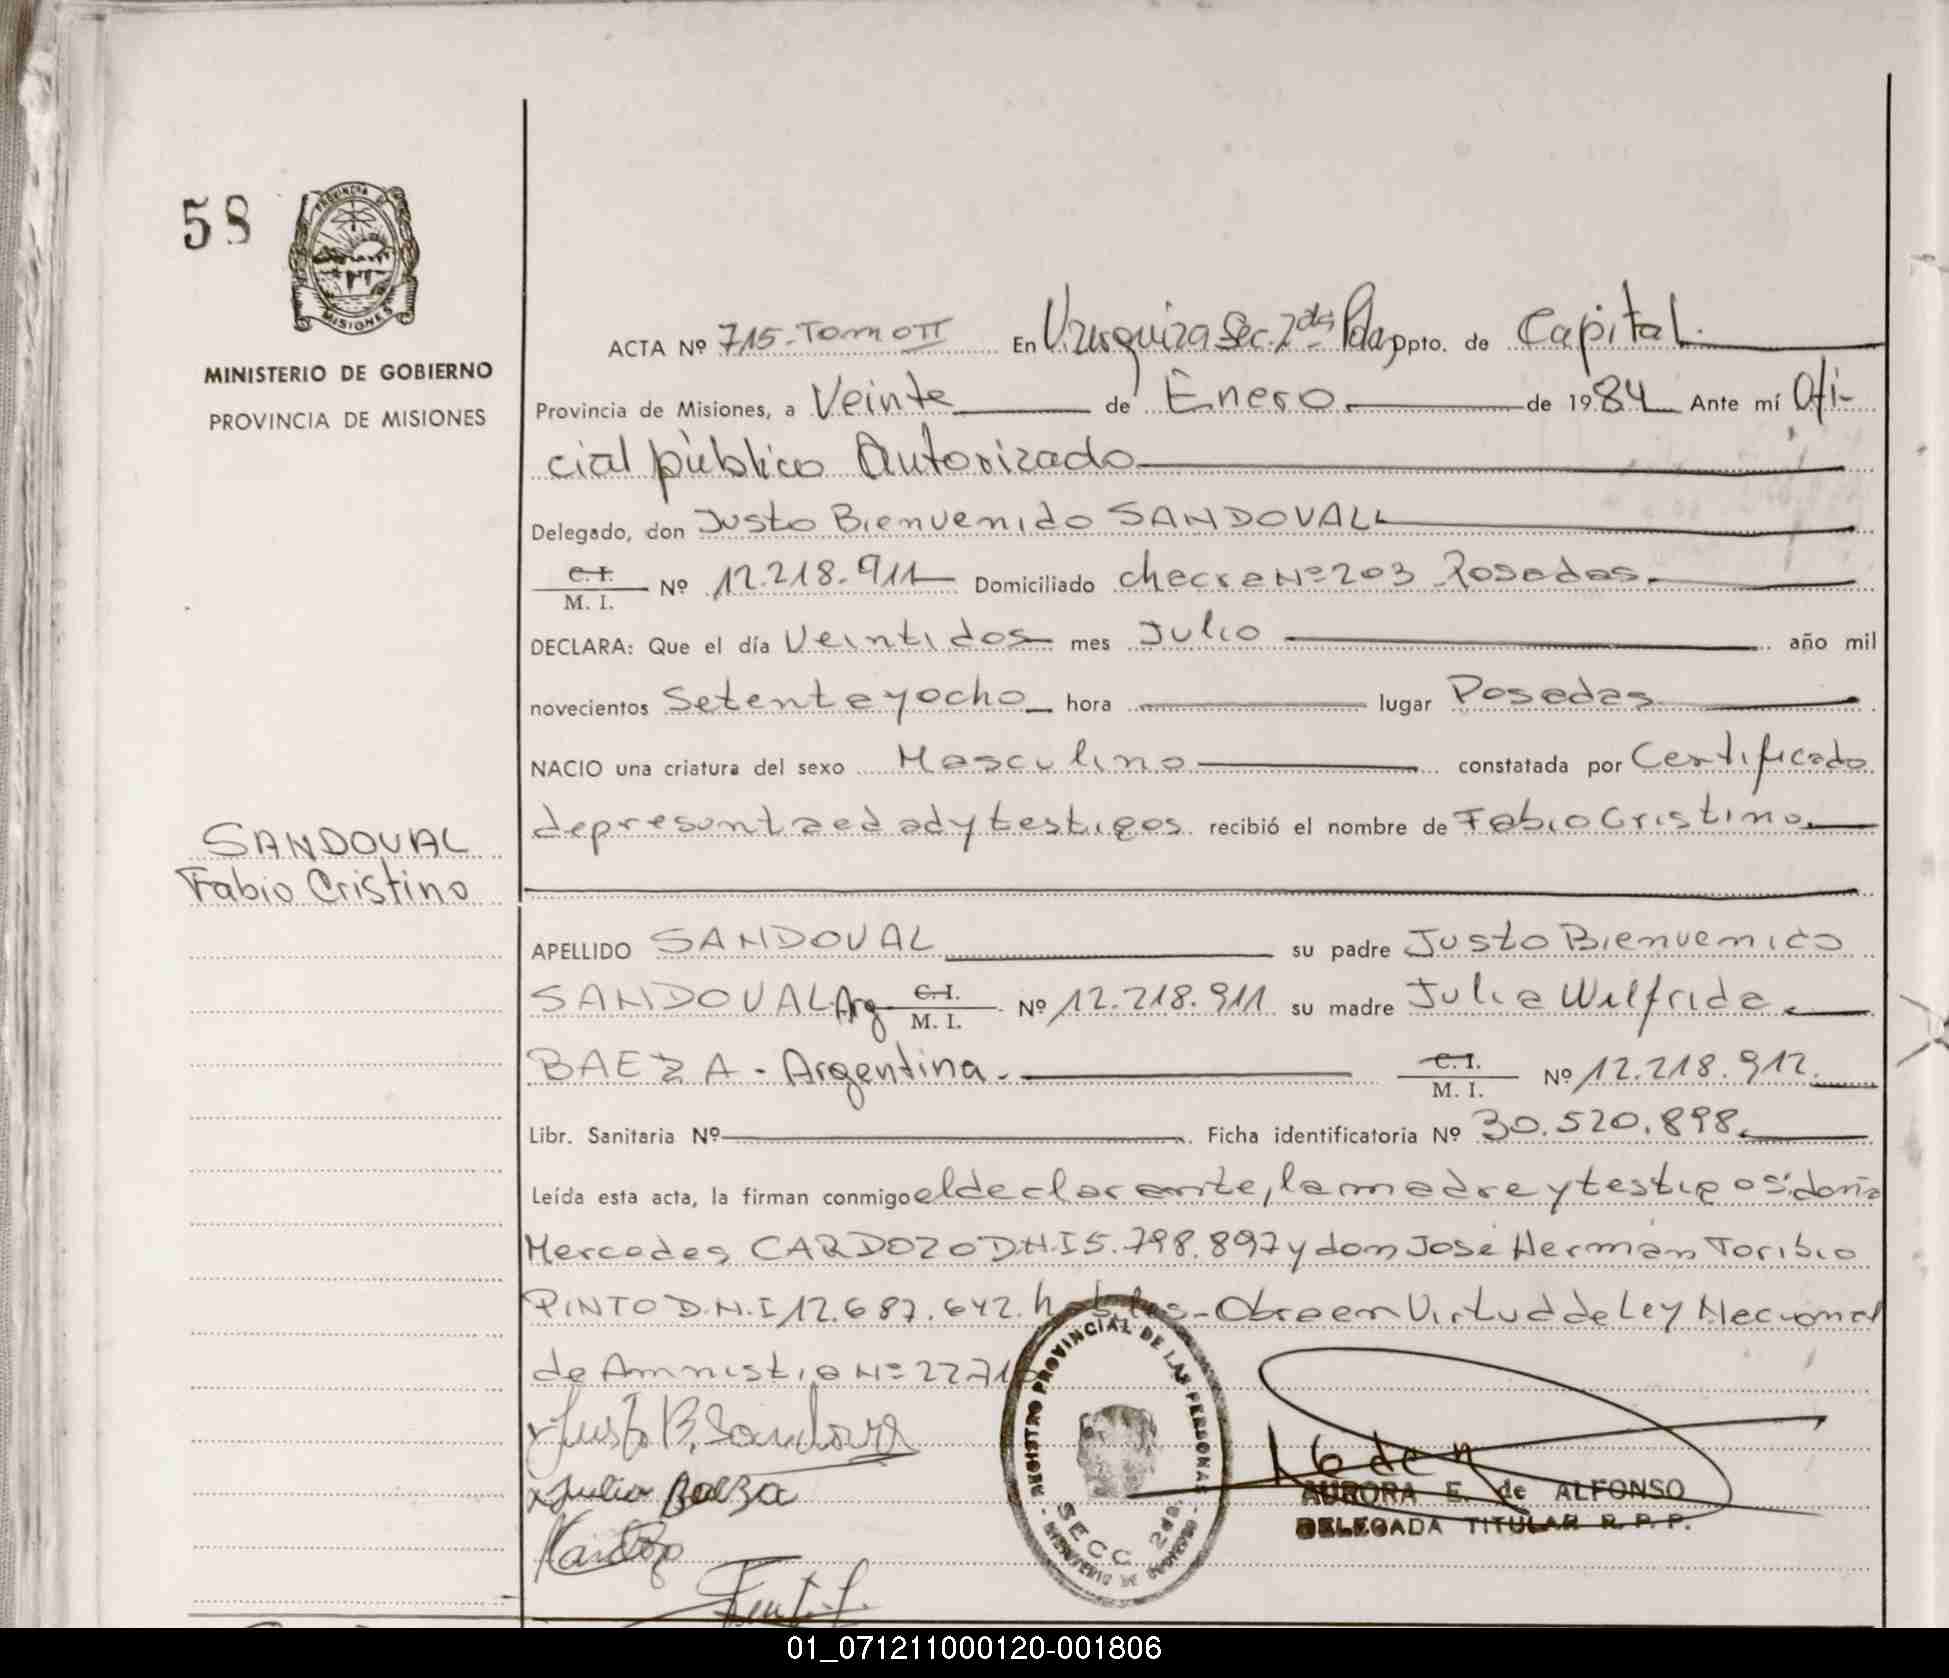 58
PROVINCIA DE
MISIONES
MINISTERIO DE GOBIERNO
PROVINCIA DE MISIONES
ACTA Nº 715-Tomo II En V. Urquiza Sec. 2da Pdas Dpto. de Capital
Provincia de Misiones, a Veinte de Enero de 1984 Ante mí Ofi-
cial público Autorizado
Delegado, don Justo Bienvenido SANDOVAL
C.I. M. I. Nº 12.218.911 Domiciliado checra Nº 203 Posadas.
DECLARA: Que el día Veintidos mes Julio año mil
novecientos Setenta y ocho hora lugar Posadas
NACIO una criatura del sexo Masculino constatada por Certificado
de presunta edad y testigos. recibió el nombre de Fabio Cristino
SANDOVAL
Fabio Cristino
APELLIDO SANDOVAL su padre Justo Bienvenido
SANDOVAL Arg C.I. M. I. Nº 12.218.911 su madre Julia Wilfrida
BAEZA - Argentina. C.I. M. I. Nº 12.218.912.
Libr. Sanitaria Nº Ficha identificatoria Nº 30.520.898.
Leída esta acta, la firman conmigo el declarante, la madre y testigos: doña
Mercedes CARDOZO D.N.I 5.798.897 y don José Hernán Toribio
PINTO D.N.I 12.687.642. habiles - Obra en Virtud de Ley Nacional
de Amnistia Nº 22710
Justo B. Sandoval
Julia Baeza
Cardozo
REGISTRO PROVINCIAL DE LAS PERSONAS
SECC 2da.
MINISTERIO DE GOBIERNO
AURORA E. de ALFONSO
DELEGADA TITULAR R. P. P.
01_071211000120-001806